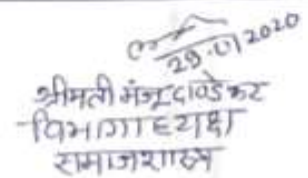 29.01.2020
श्रीमती मंजू दाण्डेकर
विभागाध्यक्ष
समाजशास्त्र